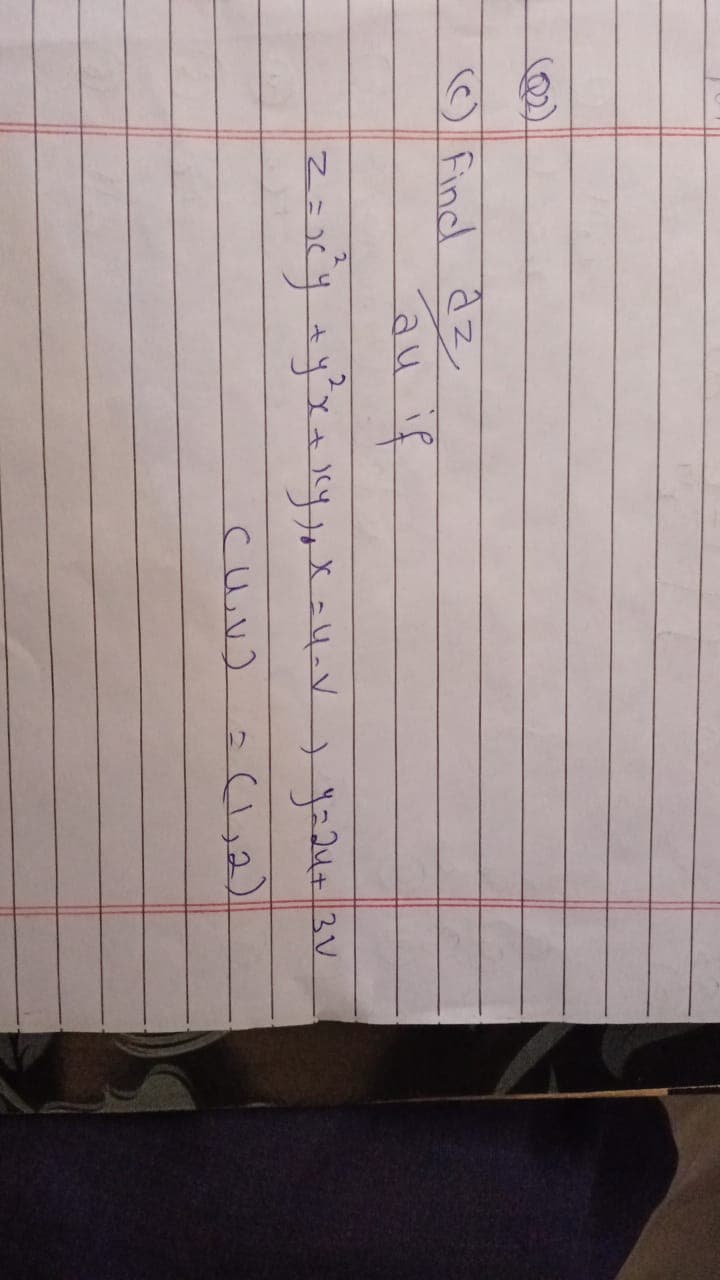 (Q2)
(c) Find ∂z/∂u if
z = x²y + y²x + xy, x = u-v, y = 2u + 3v
(u,v) = (1,2)